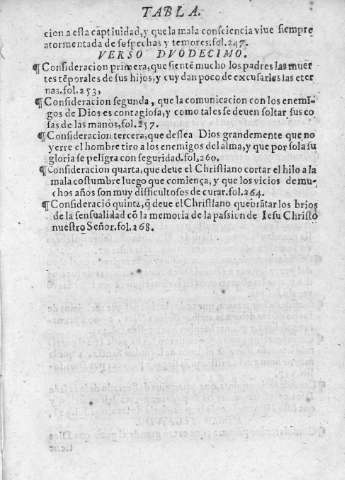 TABLA.
cien a esta captiuidad, y que la mala consciencia viue siempre
atormentada de sospechas y temores. fol. 247.
VERSO DVODECIMO.
¶Consideracion primera, que sientē mucho los padres las muer
tes tēporales de sus hijos, y cuydan poco de excusarles las eter
nas. fol. 253,
¶Consideracion segunda, que la comunicacion con los enemi-
gos de Dios es contagiosa, y como tales se deuen soltar sus co
sas de las manos, fol. 257.
¶Consideracion tercera, que dessea Dios grandemente que no
yerre el hombre tiro a los enemigos del alma, y que por sola su
gloria se peligra con seguridad. fol. 260.
¶Consideracion quarta, que deue el Christiano cortar el hilo a la
mala costumbre luego que comiença, y que los vicios de mu-
chos años son muy difficultosos de curar. fol. 264.
¶Consideració quinta, q̄ deue el Christiano quebrātar los brios
de la sensualidad cō la memoria de la passion de Iesu Christo
nuestro Señor. fol. 268.